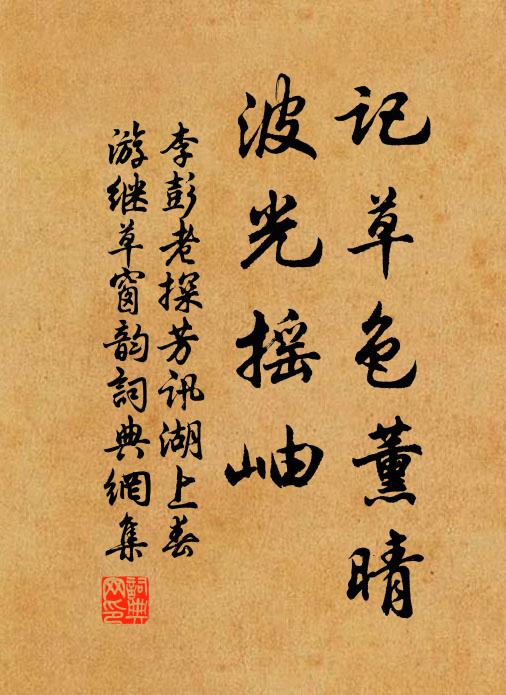 记草色薰晴
波光摇岫
李彭老探芳讯湖上春
游继草窗韵詞典網集
詞典
网印